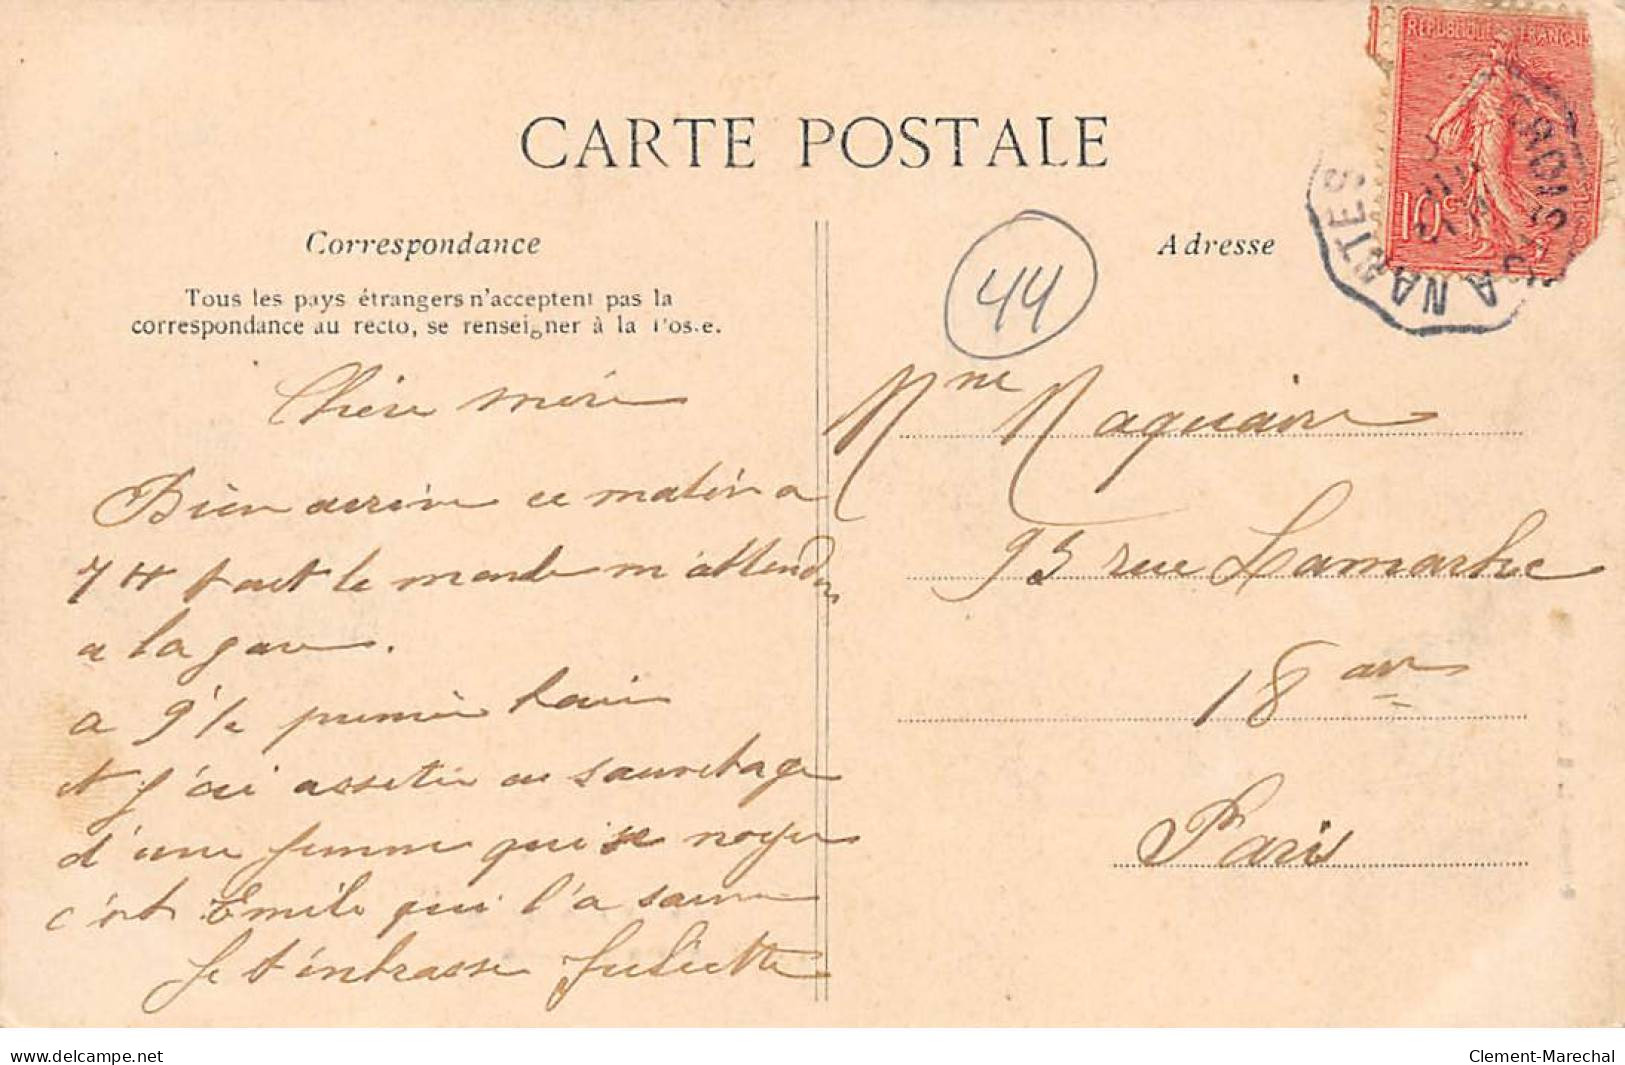 CARTE POSTALE
Correspondance
Tous les pays étrangers n'acceptent pas la
correspondance au recto, se renseigner à la Poste.
Chère mère
Bien arrivée ce matin a
7 H tout le monde m'attendais
a la gare.
a 9 h premier bain
et j'ai assister au sauvetage
d'une femme qui se noyer
c'est Emile qui l'a sauvé
Je t'embrasse Juliette
Adresse
44
REPUBLIQUE FRANÇAISE
10c
CROISIC A NANTES
Mme Maquaire
93 rue Lamarke
18 arr
Paris
www.delcampe.net
Clement-Marechal